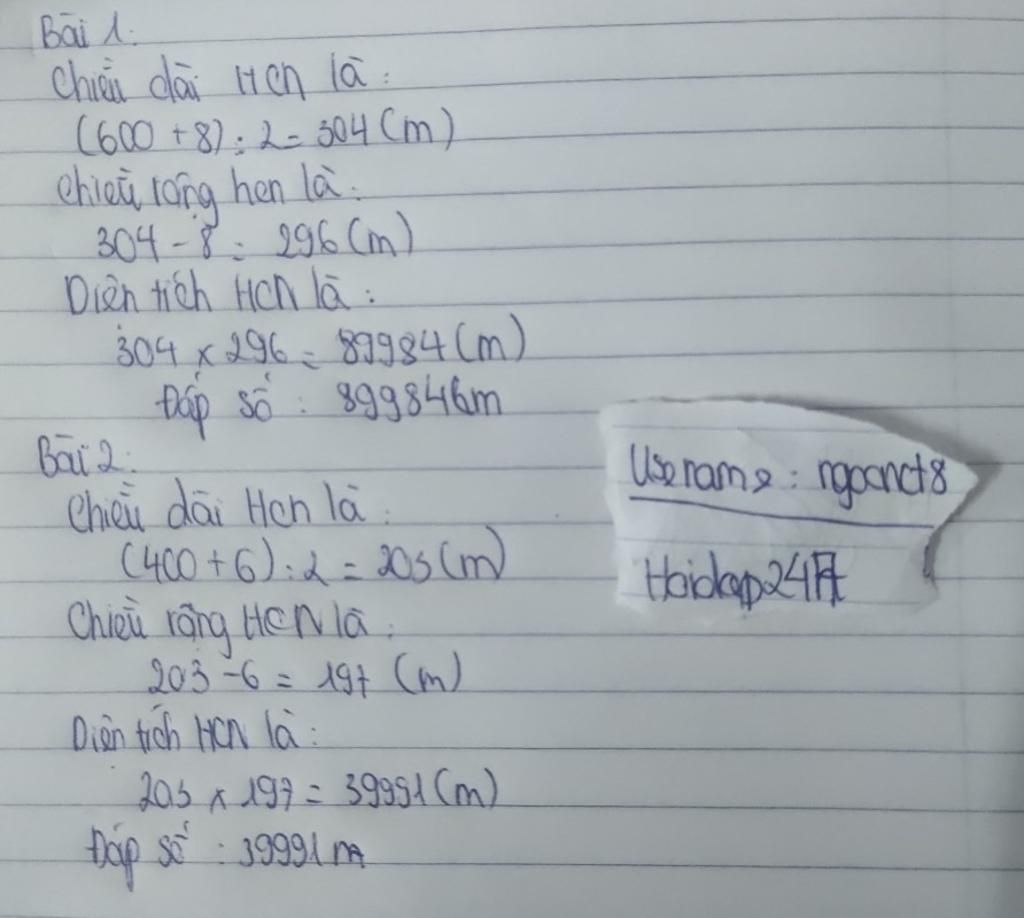 Bài 1:
Chiều dài HCN là:
(600 + 8) : 2 = 304 (m)
Chiều rộng hcn là:
304 - 8 = 296 (m)
Diện tích HCN là:
304 x 296 = 89984 (m)
Đáp số: 89984 m
Bài 2:
Chiều dài Hcn là:
(400 + 6) : 2 = 203 (m)
Chiều rộng HCN là:
203 - 6 = 197 (m)
Diện tích HCN là:
203 x 197 = 39991 (m)
Đáp số: 39991 m
Username: ngocnct8
Hoidap247